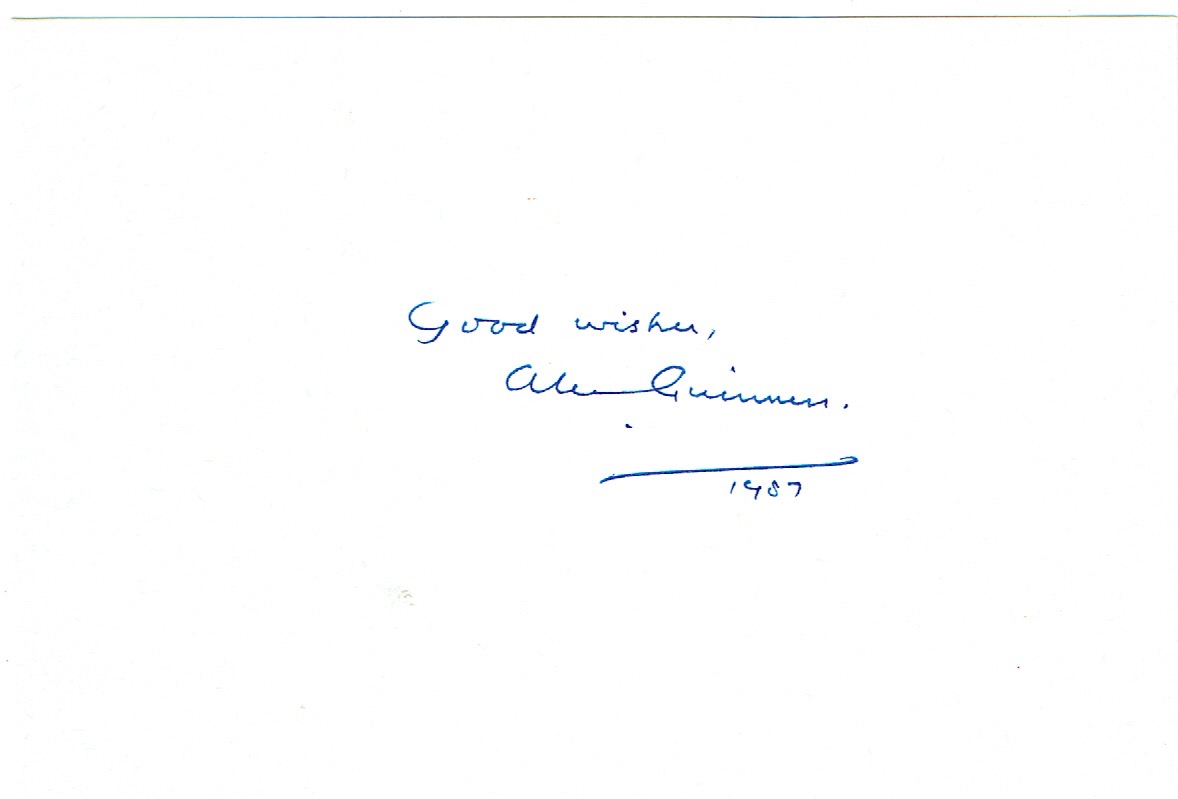 Good wishes,
Alec Guinness.
1987